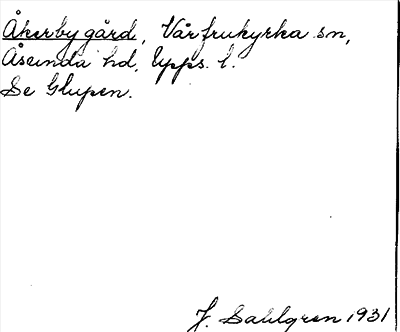 Åkerby gård, Vårfrukyrka sn,
Åsunda hd, Upps. l.
Se Glupen.
J. Sahlgren 1931